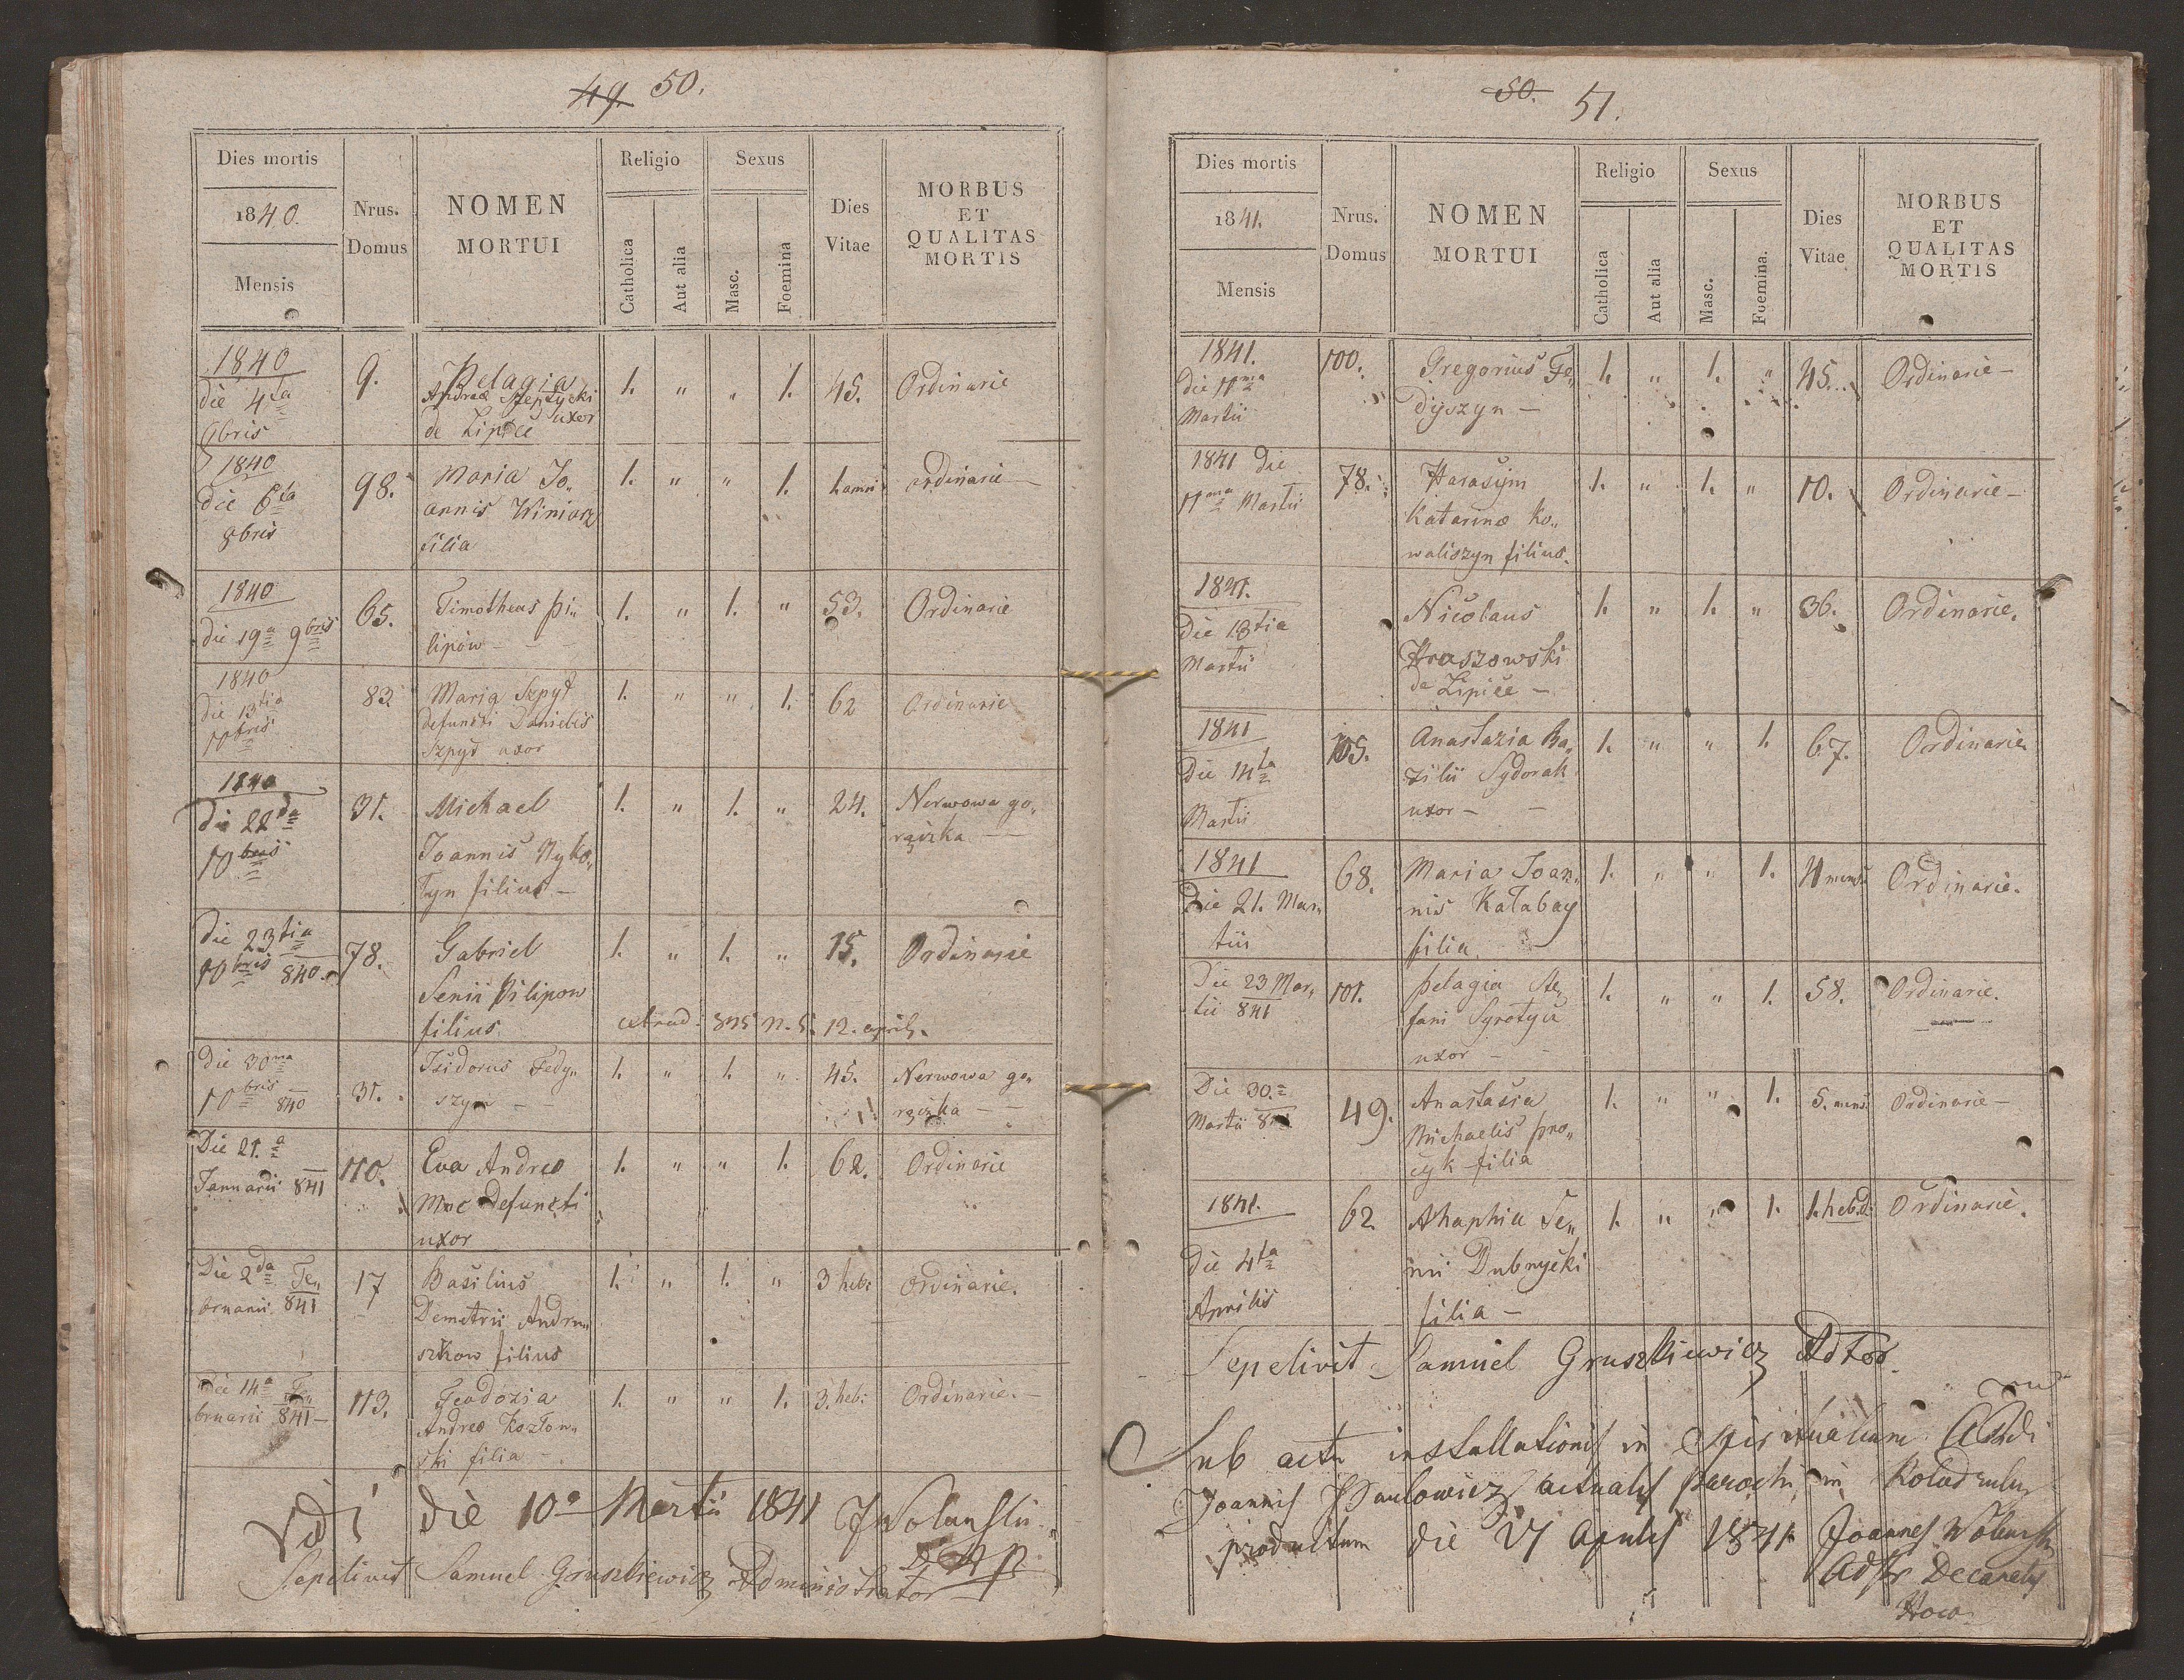 49. 50.
Dies mortis
1840.
Mensis
Nrus.
Domus
NOMEN
MORTUI
Religio
Catholica
Aut alia
Sexus
Masc.
Foemina
Dies
Vitae
MORBUS
ET
QUALITAS
MORTIS
1840
die 4ta
9bris
9.
Pelagia
Andreæ Szeptycki
uxor
de Lipice
1. " " 1. 45. Ordinarie
1840
die 6ta
9bris
98.
Maria Jo„
annis Winiarz
filia
1. " " 1. 1. anni ordinarie
1840
die 19a 9bris
65.
Timotheus Pi„
lipow
1. " 1. " 53. Ordinarie
1840
die 13tia
10bris
83
Maria Szpyt
defuncti Danielis
Szpyt uxor
1. " " 1. 62 Ordinarie
1840
di 22da
10bris
31.
Michael
Joannis Myko„
tyn filius –
1. " 1. " 24. Nerwowa go„
rączka –
die 23tia
10bris 840.
78.
Gabriel
Senii Pilipow
filius
1. " 1. " 15. Ordinarie
extrad. 875 n. 5. 12. april.
die 30ma
10bris 840
31.
Isidorus Fedy„
szyn –
1. " 1. " 45. Nerwowa go„
rączka –
Die 21.a
Januarii 841
110.
Eva Andreæ
defuncti
uxor
1. " " 1. 62. Ordinarie
Die 2da Fe„
bruarii 841
17
Basilius
Demetrii Andru„
szkow filius
1. " 1. " 3 heb: Ordinarie.
Die 14a Fe„
bruarii 841 –
113.
Teodozia
Andreæ Kozłow„
ski filia –.
1. " " 1. 3. heb: Ordinarie. –
Vidi die 10a Martii 1841 JWolanski
Sepelivit Samuel Gruszkiewicz Administrator
50. 51.
Dies mortis
1841.
Mensis
Nrus.
Domus
NOMEN
MORTUI
Religio
Catholica
Aut alia
Sexus
Masc.
Foemina.
Dies
Vitae
MORBUS
ET
QUALITAS
MORTIS
1841.
die 11ma
Martii
100.
Gregorius Fe„
dyszyn –
1. " 1. " 45. Ordinarie –
1841 die
11ma Martii
78.
Harasym
Katarinæ Ko„
waliszyn filius.
1. " 1. " 10. Ordinarie –
1841.
Die 13tia
Martii
Nicolaus
Hraszowski
de Lipice –
1. " 1. " 36. Ordinarie.
1841
Die 14ta
Martii
105.
Anastazia Ba„
zilii Sydorak
uxor –
1. " " 1. 67. Ordinarie
1841
Die 21. Mar„
tii
68.
Maria Joan„
nis Kałabay
filia.
1. " " 1. 4 mens. Ordinarie.
Die 23 Mar„
tii 841
101.
Pelagia Ste„
fani Syrotyu
uxor –
1. " " 1. 58. Ordinarie.
Die 30.a
Martii 841
49.
Anastasia
Michaelis Pro„
cyk filia
1. " " 1. 5. mens. Ordinarie –
1841.
die 4ta
Aprilis
62
Ahaphia Se„
nii Dubnycki
filia –
1. " " 1. 1. hebd. Ordinarie.
Sepelivit Samuel Gruszkiewicz Adtor.
Sub actu installationis in spiritualium
Joannis Pawlowicz actualis Parochi in
productum die Aprilis 1841 Joannes Wolanski
Adtor Decanatus